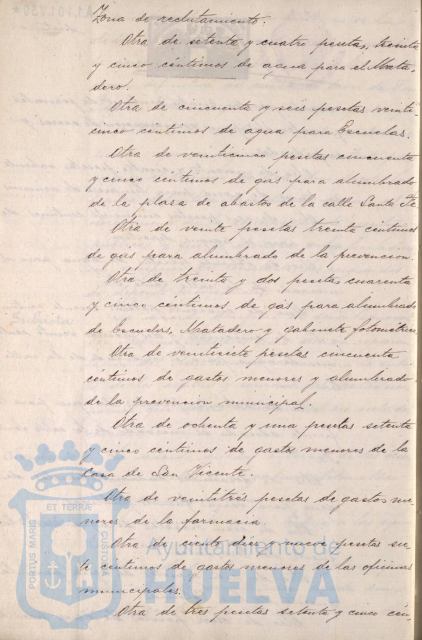 Zona de reclutamiento.
Otra de setenta y cuatro pesetas, treinta
y cinco céntimos de agua para el Mata-
dero.
Otra de cincuenta y seis pesetas veinti-
cinco centimos de agua para Escuelas.
Otra de veinticinco pesetas cincuenta
y cinco céntimos de gas para alumbrado
de la plaza de abastos de la calle Santa Fe
Otra de veinte pesetas treinta céntimos
de gas para alumbrado de la prevencion.
Otra de treinta y dos pesetas cuarenta
y cinco céntimos de gas para alumbrado
de Escuelas, Matadero y gabinete fotometrico
Otra de veintisiete pesetas cincuenta
céntimos de gastos menores y alumbrado
de la prevencion municipal.
Otra de ochenta y una pesetas setenta
y cinco céntimos de gastos menores de la
Casa de San Vicente.
Otra de veintitrés pesetas de gastos me-
nores, de la farmacia.
Otra de ciento diez y nueve pesetas sie-
te centimos de gastos menores de las oficinas
municipales.
Otra de tres pesetas setenta y cinco cén-
PORTUS MARIS ET TERRÆ CUSTODIA
Ayuntamiento de
HUELVA